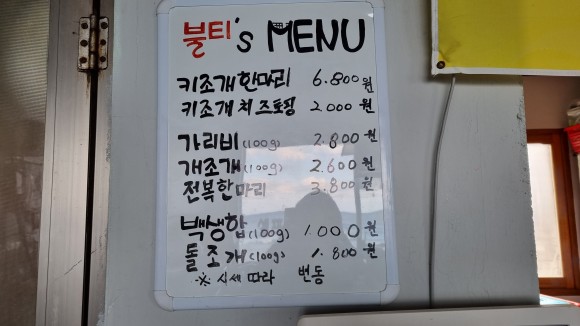 불티's MENU
키조개한마리 6.800원
키조개치즈토핑 2.000원
가리비(100g) 2.800원
개조개(100g) 2.600원
전복한마리 3.800원
백생합(100g) 1.000원
돌조개(100g) 1.800원
※ 시세 따라 변동